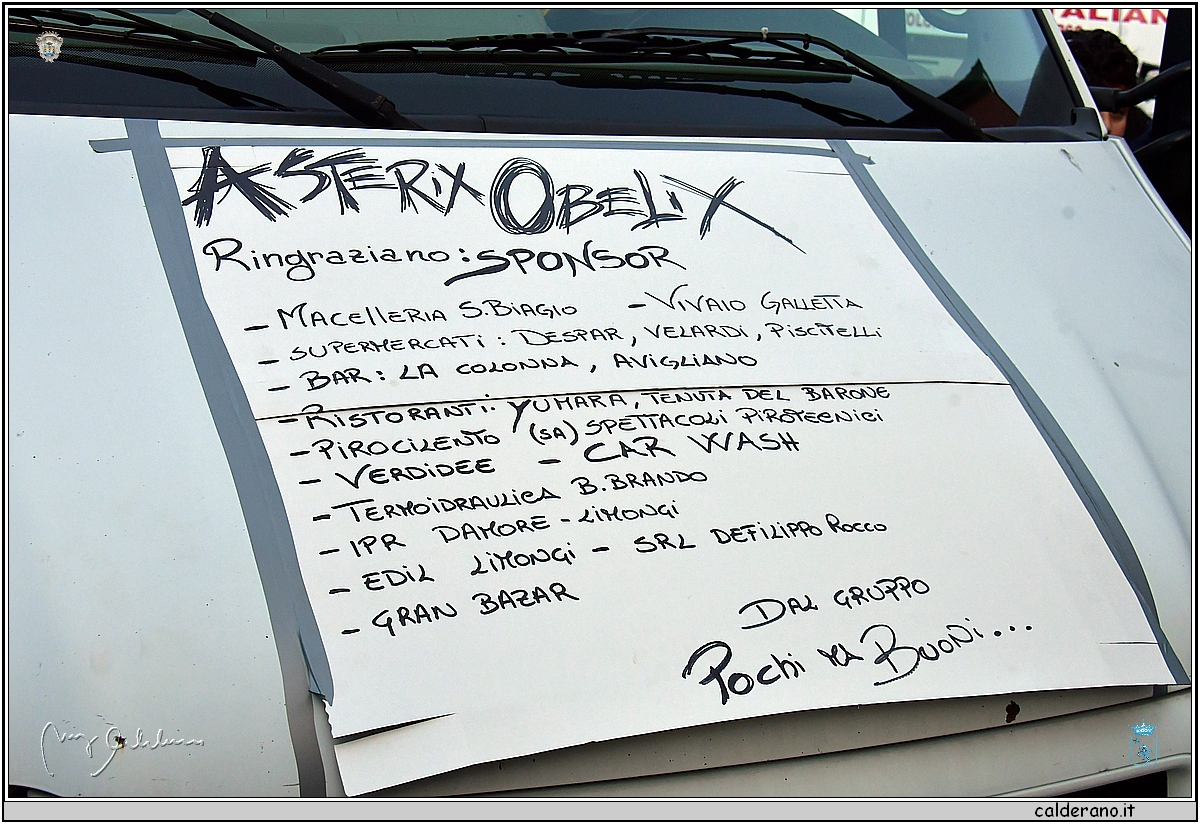 ITALIAN
ASTERIX OBELIX
Ringraziano: SPONSOR
- MACELLERIA S.BIAGIO - VIVAIO GALLETTA
- SUPERMERCATI: DESPAR, VELARDI, PISCITELLI
- BAR: LA COLONNA, AVIGLIANO
- RISTORANTI: YUMARA, TENUTA DEL BARONE
- PIROCILENTO (SA) SPETTACOLI PIROTECNICI
- VERDIDEE - CAR WASH
- TERMOIDRAULICA B.BRANDO
- IPR DAMORE - LIMONGI
- EDIL LIMONGI - SRL DEFILIPPO ROCCO
- GRAN BAZAR
DAL GRUPPO
POCHI MA BUONI...
calderano.it